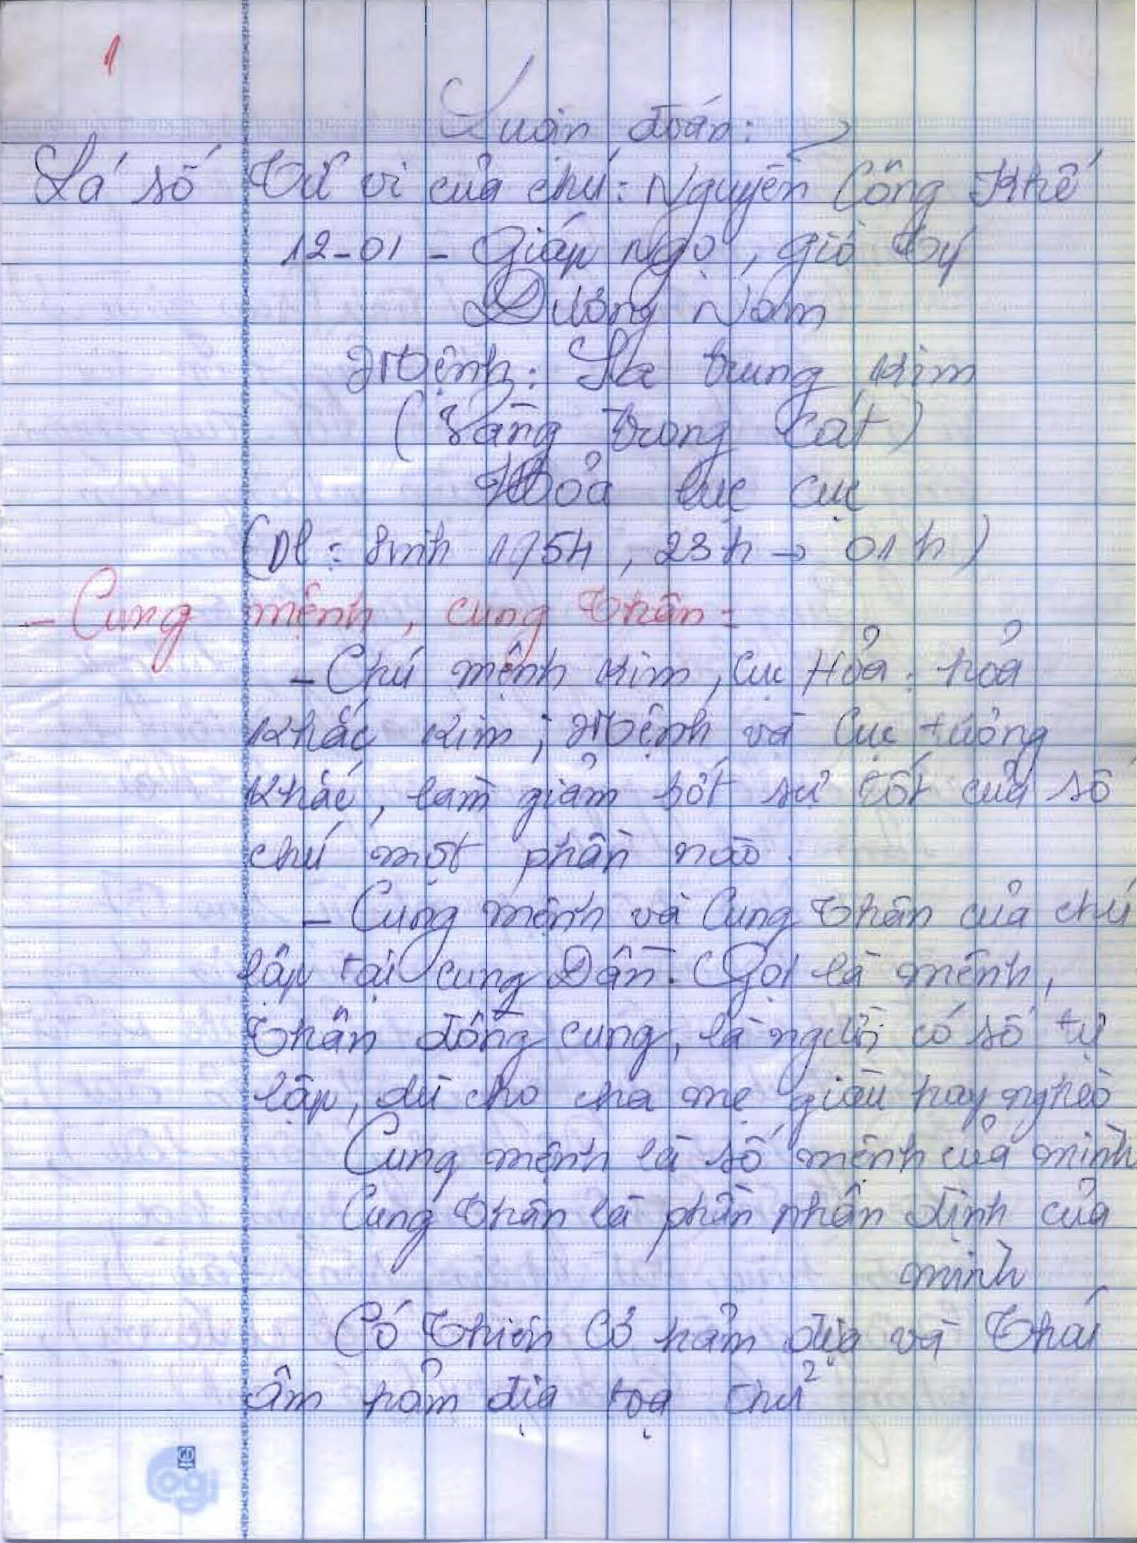 1
Luận đoán:
Lá số Tử vi của chú: Nguyễn Công Khế
12-01 - Giáp Ngọ, giờ Tý
Dương Nam
Mệnh: Sa trung kim
(Vàng trong cát)
Hỏa lục cục
(Dl: sinh 1954, 23h → 01h)
- Cung mệnh, cung Thân:
- Chú mệnh kim, cục Hỏa: hỏa
khắc kim; Mệnh và Cục tương
khắc, làm giảm bớt sự tốt của số
chú một phần nào.
- Cung mệnh và Cung Thân của chú
lập tại cung Dần. Gọi là mệnh,
Thân đồng cung, là người có số tự
lập, dù cho cha mẹ giàu hay nghèo
Cung mệnh là số mệnh của mình
Cung Thân là phần phận định của
mình
Có Thiên Cơ hãm địa và Thái
âm hãm địa tọa thủ
GD
ogi